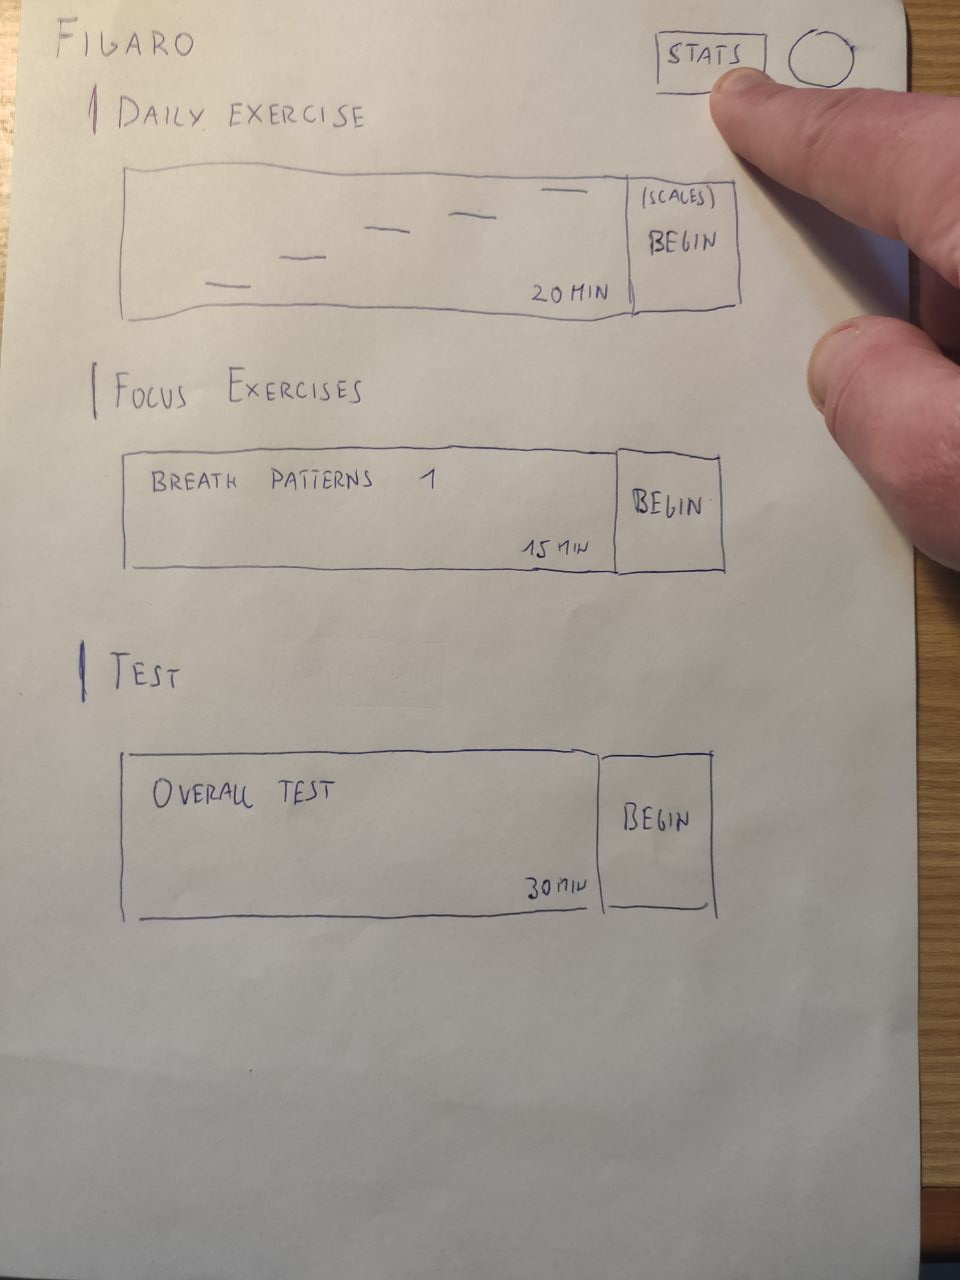 FIGARO
STATS
DAILY EXERCISE
(SCALES)
BEGIN
20 MIN
FOCUS EXERCISES
BREATH PATTERNS 1
BEGIN
15 MIN
TEST
OVERALL TEST
BEGIN
30 MIN